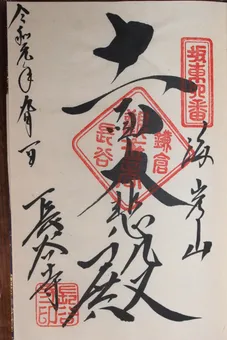 坂東四番
海光山
十一面大悲殿
鎌倉
長谷
令和元年
長谷寺